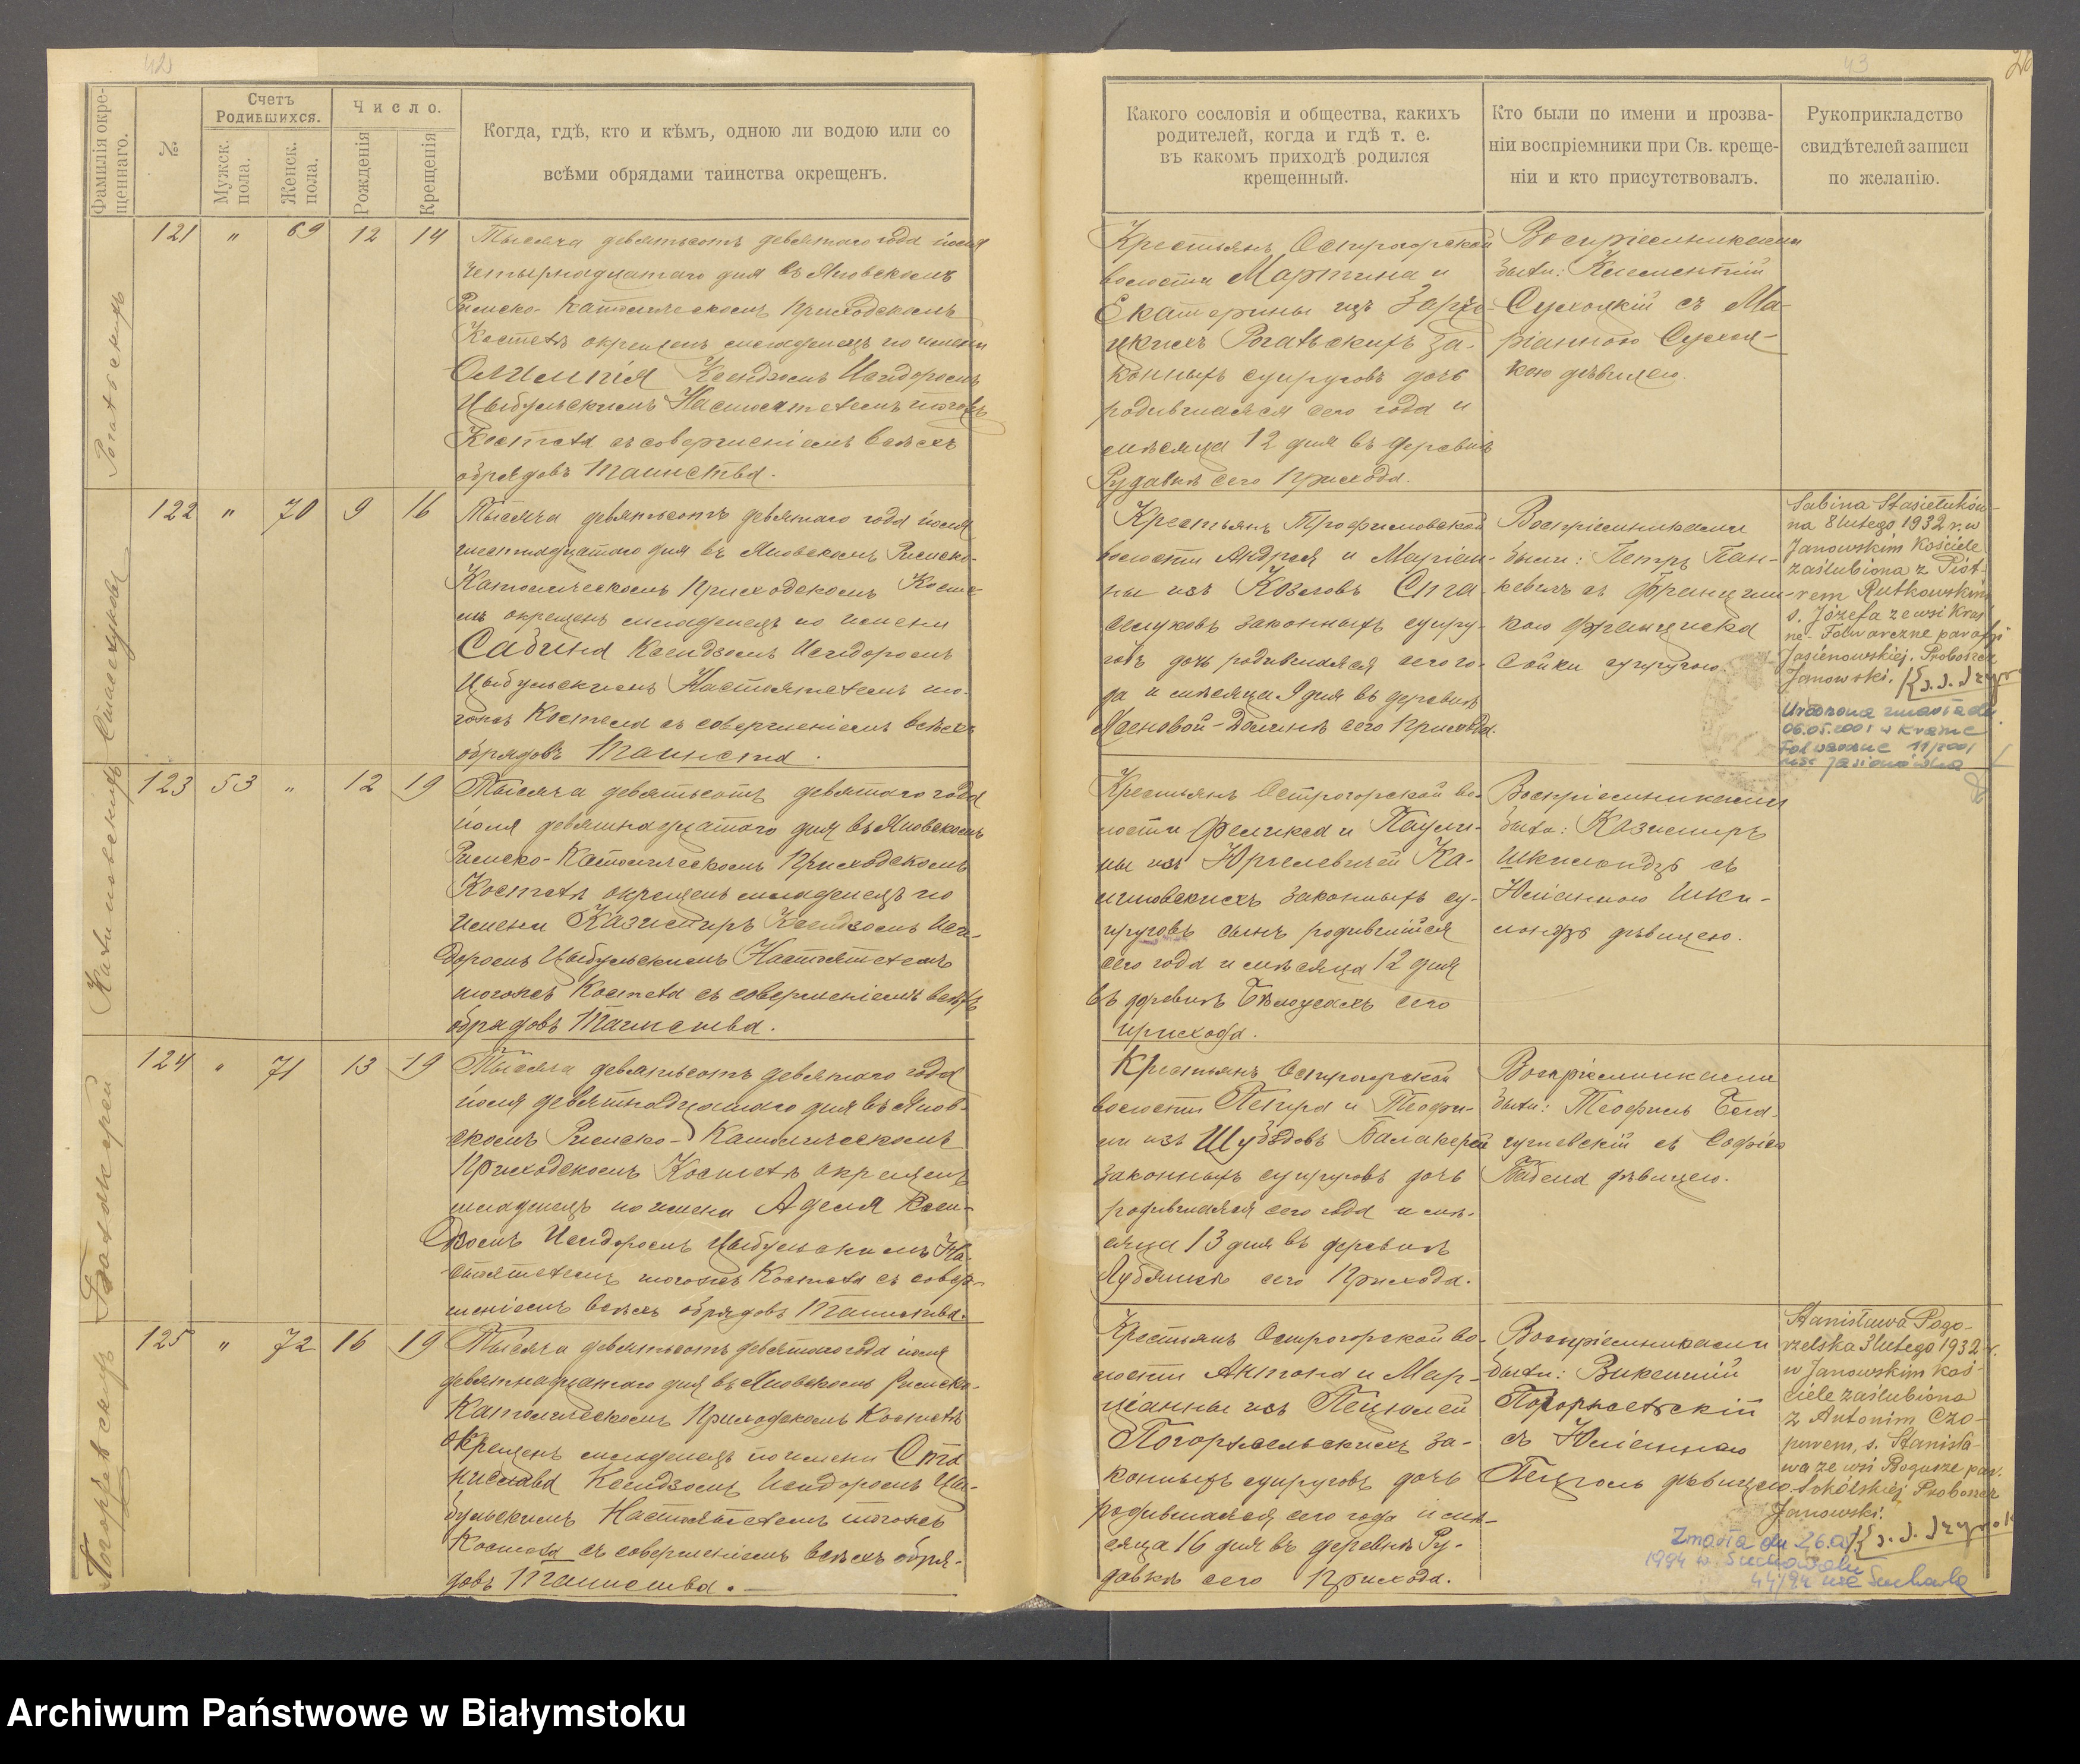 42
Фамилія окре-
щеннаго.
№
Счетъ
Родившихся.
Мужск.
пола.
Женск.
пола.
Число.
Рожденія
Крещенія
Когда, гдѣ, кто и кѣмъ, одною ли водою или со
всѣми обрядами таинства окрещенъ.
121 " 69 12 14
Тысяча девятьсотъ девятаго года іюля
четырнадцатаго дня въ Яновскомъ
Римско-Католическомъ Приходскомъ
Костелѣ окрещенъ младенецъ по имени
Олимпія Ксендзомъ Исидоромъ
Цыбульскимъ Настоятелемъ тогожъ
Костела съ совершеніемъ всѣхъ
обрядовъ Таинства.
122 " 70 9 16
Тысяча девятьсотъ девятаго года іюля
шестнадцатаго дня въ Яновскомъ Римско-
Католическомъ Приходскомъ Косте-
лѣ окрещенъ младенецъ по имени
Сабина Ксендзомъ Исидоромъ
Цыбульскимъ Настоятелемъ то-
гожъ Костела съ совершеніемъ всѣхъ
обрядовъ Таинства.
123 53 " 12 19
Тысяча девятьсотъ девятаго года
іюля девятнадцатаго дня въ Яновскомъ
Римско-Католическомъ Приходскомъ
Костелѣ окрещенъ младенецъ по
имени Казимиръ Ксендзомъ Иси-
доромъ Цыбульскимъ Настоятелемъ
тогожъ Костела съ совершеніемъ всѣхъ
обрядовъ Таинства.
124 " 71 13 19
Тысяча девятьсотъ девятаго года
іюля девятнадцатаго дня въ Янов-
скомъ Римско-Католическомъ
Приходскомъ Костелѣ окрещенъ
младенецъ по имени Аделя Ксен-
дзомъ Исидоромъ Цыбульскимъ На-
стоятелемъ тогожъ Костела съ совер-
шеніемъ всѣхъ обрядовъ Таинства.
125 " 72 16 19
Тысяча девятьсотъ девятаго года іюля
девятнадцатаго дня въ Яновскомъ Римско-
Католическомъ Приходскомъ Костелѣ
окрещенъ младенецъ по имени Ста
нислава Ксендзомъ Исидоромъ Цы-
бульскимъ Настоятелемъ тогожъ
Костела съ совершеніемъ всѣхъ обря-
довъ Таинства.
43
Какого сословія и общества, какихъ
родителей, когда и гдѣ т. е.
въ какомъ приходѣ родился
крещенный.
Кто были по имени и прозва-
ніи воспріемники при Св. креще-
ніи и кто присутствовалъ.
Рукоприкладство
свидѣтелей записи
по желанію.
Крестьянъ Острогорской
волости Мартина и
Екатерины изъ
Рогальскихъ за-
конныхъ супруговъ дочь
родившаяся сего года и
мѣсяца 12 дня въ деревнѣ
Рудавкѣ сего Прихода.
Воспріемниками
были: Климентій
Сухоцкій съ Ма-
ріанною Сухоц-
кою дѣвицею.
Крестьянъ Трофимовской
волости Андрея и Маріан-
ны изъ Козловъ Ста-
селуковъ законныхъ супру-
говъ дочь родившаяся сего го-
да и мѣсяца 9 дня въ деревнѣ
Ясеновой-Долинѣ сего Прихода.
Воспріемниками
были: Петръ Пан-
кевичъ съ Францишк-
кою Франциска
Сойки супругою.
Sabina Stasieluków-
na 8 lutego 1932 r. w
Janowskim Kościele
zaślubiona z Piot-
rem Rutkowskim
s. Józefa ze wsi Kraś
ne-Folwarczne parafji
Jasionowskiej. Proboszcz
Janowski.
06.05.2001 w Krasne
Folwarczne 11/2001
usc Jasionówka
Крестьянъ Острогорской во-
лости Феликса и Паули-
ны изъ Юргелевичей Ка-
законныхъ су-
пруговъ сынъ родившійся
сего года и мѣсяца 12 дня
въ деревнѣ Бѣлоусахъ сего
прихода.
Воспріемниками
были: Казимиръ
Шкилондзъ съ
Юліанною Шки-
лондзъ дѣвицею.
Крестьянъ Острогорской
волости Петра и Теофи-
ли изъ Шубздовъ Балакерей
законныхъ супруговъ дочь
родившаяся сего года и мѣ-
сяца 13 дня въ деревнѣ
Лубянкѣ сего Прихода.
Воспріемниками
были: Теофиль Бога-
съ Софіею
дѣвицею.
Крестьянъ Острогорской во-
лости Антона и Мар-
ціанны изъ Пецюлей
Погоржельскихъ за-
конныхъ супруговъ дочь
родившаяся сего года и мѣ-
сяца 16 дня въ деревнѣ Ру-
давкѣ сего Прихода.
Воспріемниками
были: Викентій
Погоржельскій
съ Юліанною
Пецюль дѣвицею.
Stanisława Pogo-
rzelska 3 lutego 1932 r.
w Janowskim koś-
ciele zaślubiona
z Antonim Czo-
purem, s. Stanisła-
wa ze wsi Bogusze par.
Sokólskiej Proboszcz
Janowski.
Zmarła dn 26.01
1994 w Suchowoli
44/94 usc Suchowola
Archiwum Państwowe w Białymstoku